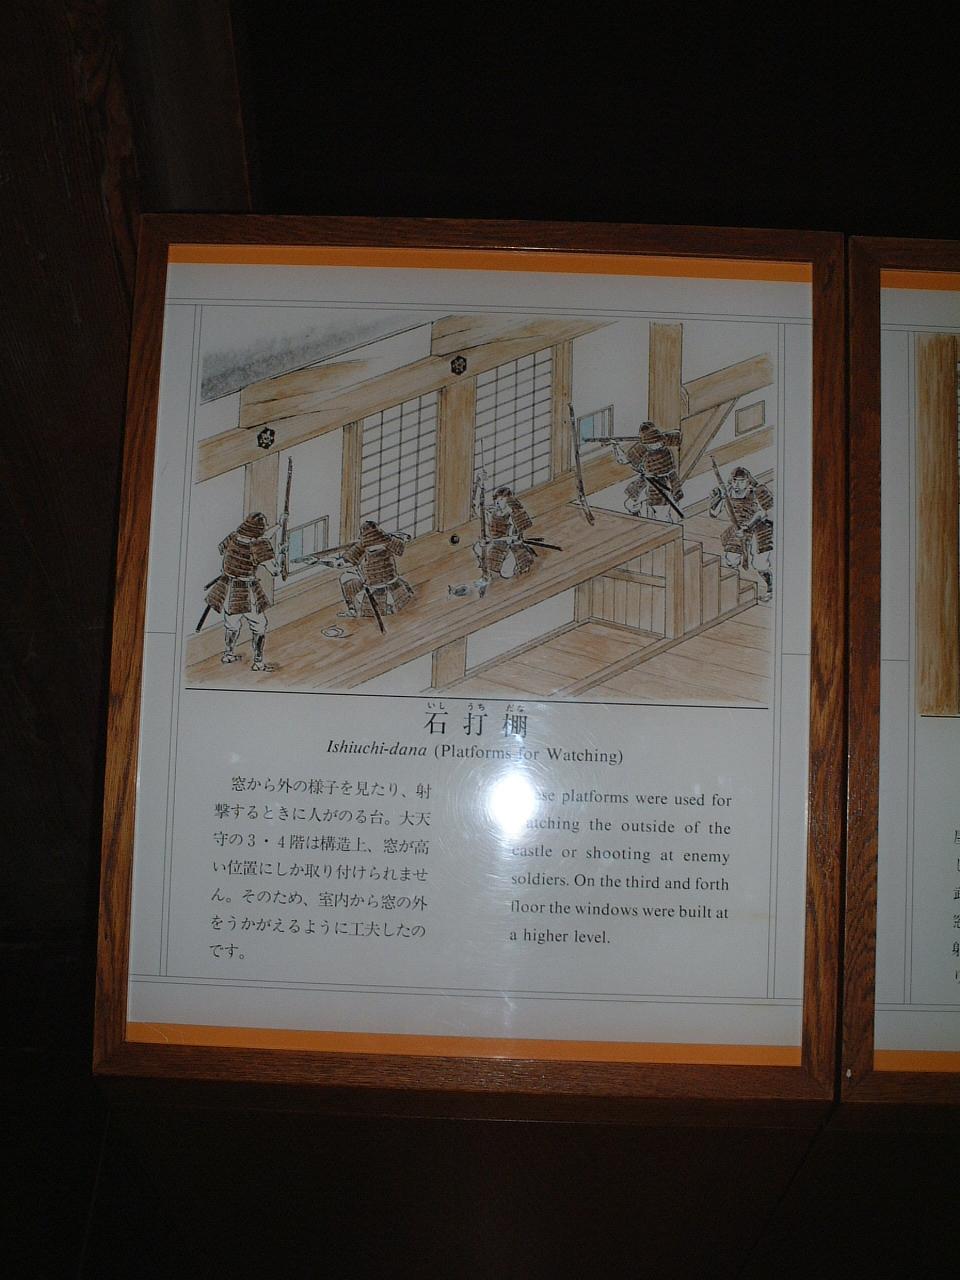 いし うち だな
石 打 棚
Ishiuchi-dana (Platforms for Watching)
窓から外の様子を見たり、射
撃するときに人がのる台。大天
守の３・４階は構造上、窓が高
い位置にしか取り付けられませ
ん。そのため、室内から窓の外
をうかがえるように工夫したの
です。
platforms were used for
watching the outside of the
castle or shooting at enemy
soldiers. On the third and forth
floor the windows were built at
a higher level.